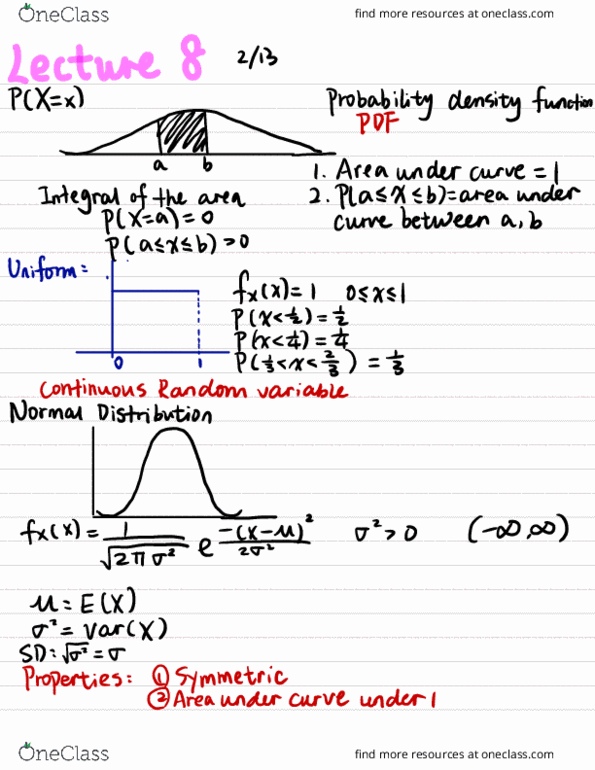 OneClass
find more resources at oneclass.com
Lecture 8 2/13
P(X=x)
Probability density function
PDF
a b
1. Area under curve = 1
2. P(a≤X≤b)=area under
curve between a, b
Integral of the area
P(X=a)=0
P(a≤x≤b)>0
Uniform:
0 1
fx(x)=1 0≤x≤1
P(x<1/2)=1/2
P(x<1/4)=1/4
P(1/3<x<2/3)=1/3
Continuous Random variable
Normal Distribution
fx(x)= 1/√(2πσ²) e^(-(x-μ)²/2σ²) σ²>0 (-∞,∞)
μ=E(X)
σ²=var(X)
SD:√σ²=σ
Properties: ① Symmetric
② Area under curve under 1
OneClass
find more resources at oneclass.com